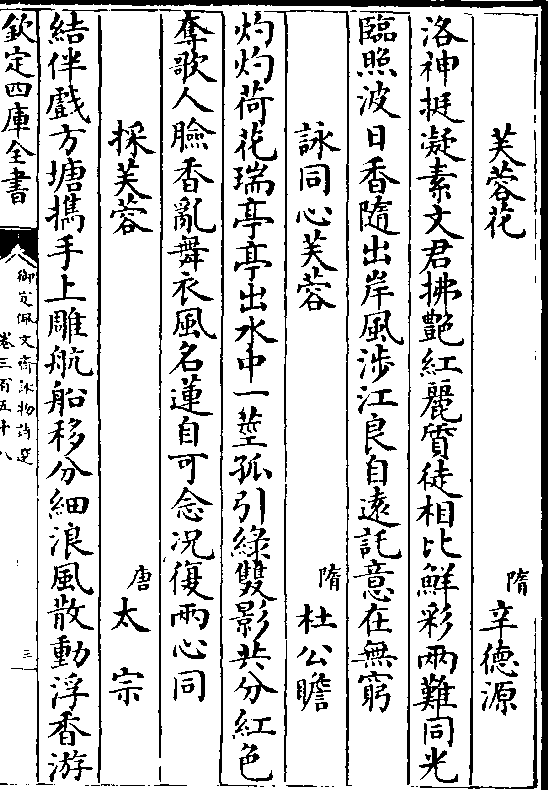 芙蓉花　隋　辛德源
洛神挺凝素文君拂艶紅麗質徒相比鮮彩兩難同光
臨照波日香隨出岸風涉江良自遠託意在無窮
詠同心芙蓉　隋　杜公瞻
灼灼荷花瑞亭亭出水中一莖孤引綠雙影共分紅色
奪歌人臉香亂舞衣風名蓮自可念况復兩心同
採芙蓉　唐　太宗
結伴戲方塘攜手上雕航船移分細浪風散動浮香游
欽定四庫全書
御定佩文齋詠物詩選
卷三百五十八
三